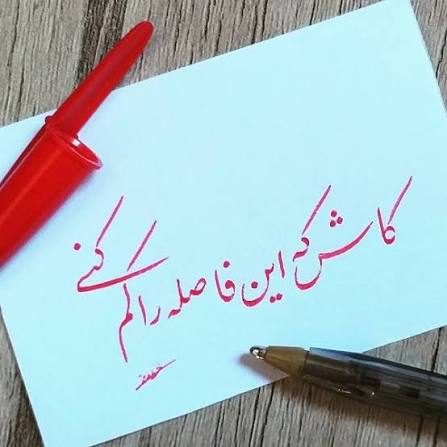 کاش که این فاصله را کم کنی